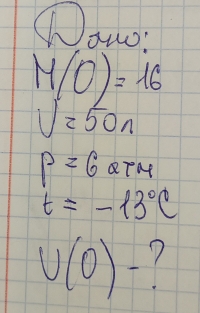 Дано:
M(O) = 16
V = 50л
p = 6 атм
t = -13°C
υ(O) - ?